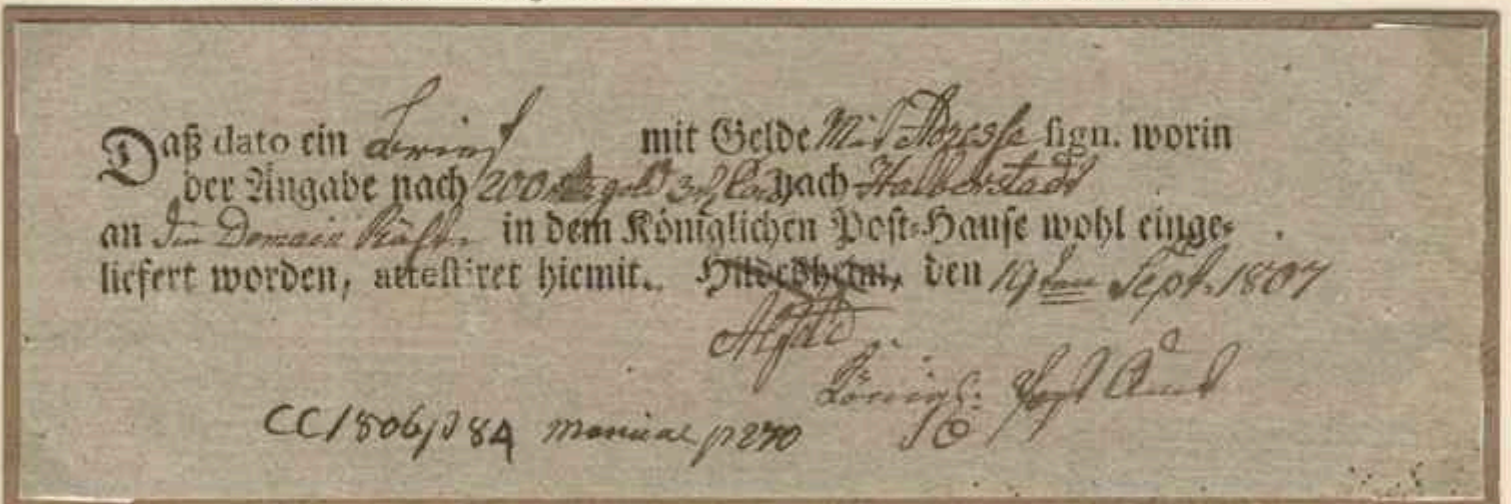 Daß dato ein Brief mit Gelde Mit Adresse sign. worin
der Angabe nach 200 gold nach Halberstadt
an Domain in dem Königlichen Post-Hause wohl einge-
liefert worden, attestiret hiemit. Hildesheim, den 19ten Sept. 1807
Königl: Post Amt
CC 1806 p 84 manual p 270